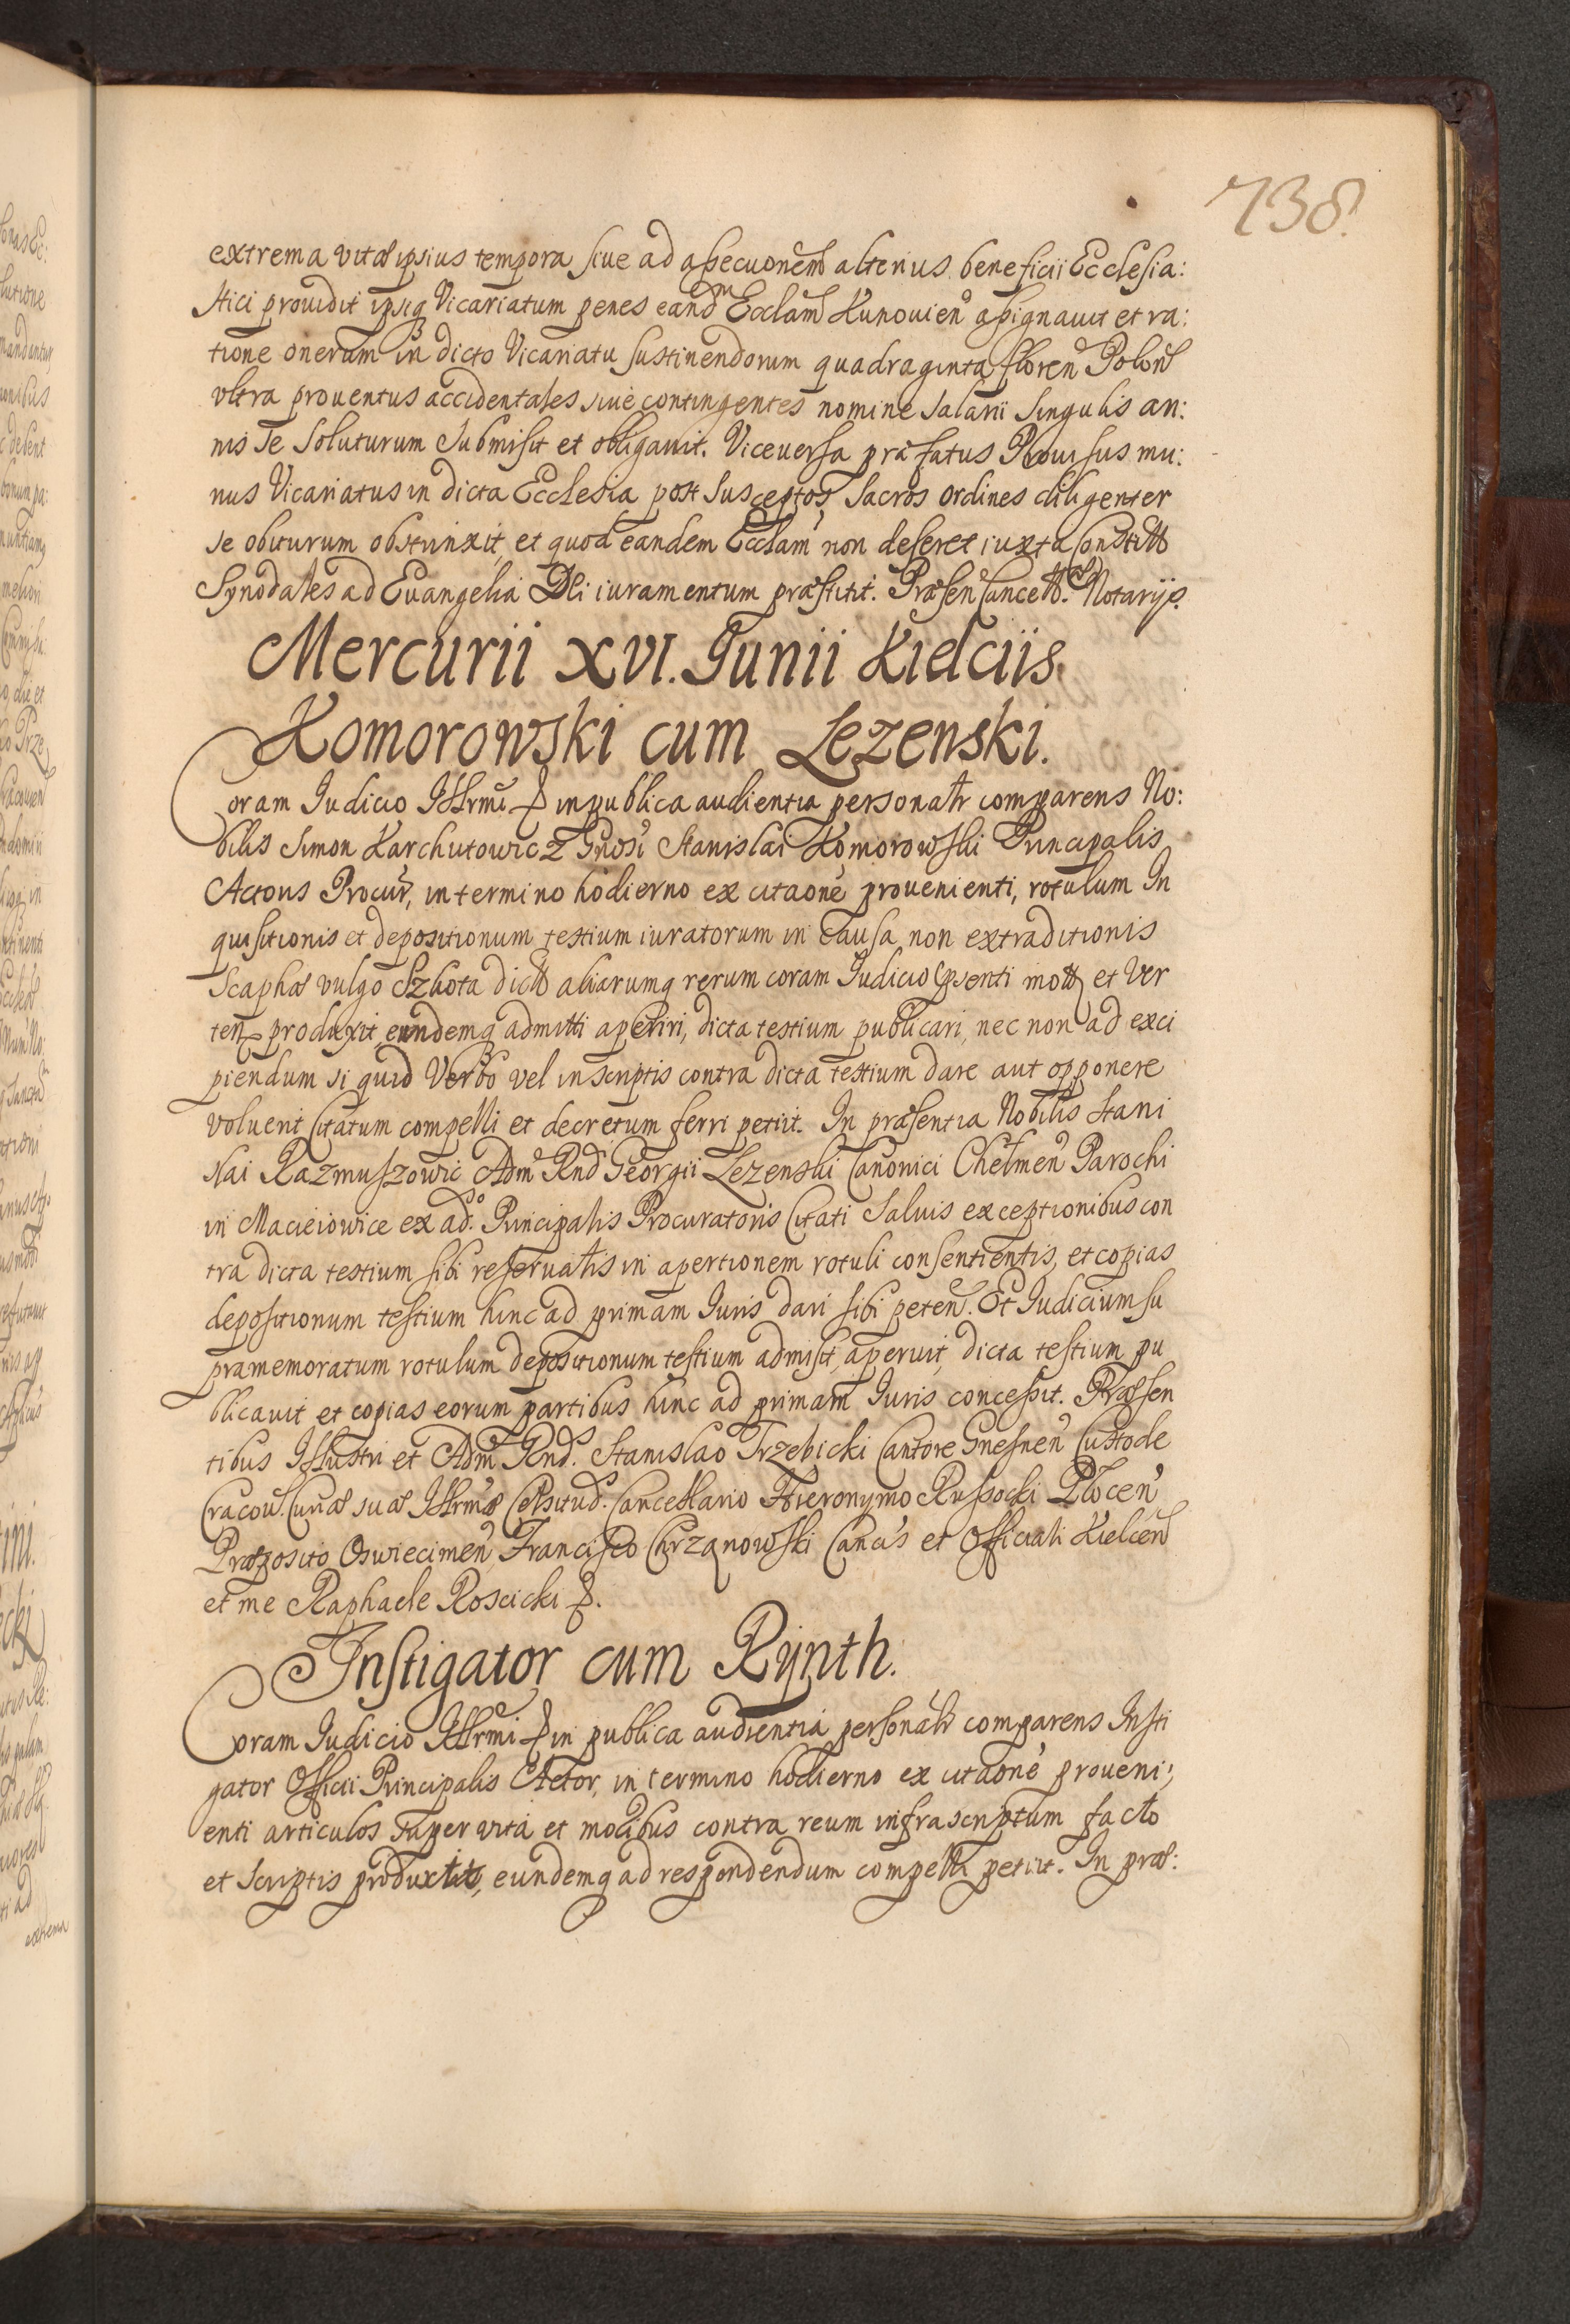 738.
extrema vitæ ipsius tempora siue ad assecuonem alterius beneficii Ecclesia:
stici prouidit ipsiq Vicariatum penes eandm Ecclam Kunouien assignauit et ra:
tione onerum in dicto Vicariatu sustinendorum quadraginta floren Polon
vltra prouentus accidentales siue contingentes nomine salarii singulis an:
nis se soluturum submisit et obligauit. Viceuersa præfatus Prouisus mu:
nus Vicariatus in dicta Ecclesia post susceptos sacros ordines diligenter
se obiturum obstrinxit, et quod eandem Ecclam non deseret iuxta Constitt
Synodales ad Euangelia Dei iuramentum præstitit. Præsen Cancell. Notarijs.
Mercurii XVI. Junii Kielciis.
Komorowski cum Lezenski.
Coram Iudicio Illrmi &c in publica audientia personalr comparens No:
bilis Simon Karchutowicz Gnosi Stanislai Komorowski Principalis
Actoris Procur, in termino hodierno ex citaone prouenienti, rotulum In
quisitionis et depositionum testium iuratorum in causa non extraditionis
Scaphæ vulgo Szkota dict aliarumq rerum coram Iudicio psenti mott et Ver
ten produxit, eundemq admitti aperiri, dicta testium publicari, nec non ad exci
piendum si quid Verbo vel in scriptis contra dicta testium dare aut opponere
voluerit Citatum compelli et decretum ferri petiit. In præsentia Nobilis Stani
slai Razmuszowic Adm Rnd Georgii Lezenski Canonici Chelmen Parochi
in Macieiowice ex ad. Principalis Procuratoris Citati Saluis exceptionibus con
tra dicta testium sibi reseruatis in apertionem rotuli consentientis, et copias
depositionum testium hinc ad primam Iuris dari sibi peten. Et Iudicium su
pramemoratum rotulum depositionum testium admisit, aperuit, dicta testium pu
blicauit et copias eorum partibus hinc ad primam Iuris concessit. Præsen
tibus Illustri et Adm Rnd. Stanislao Trzebicki Cantore Gnesnen Custode
Cracou. Curiæ suæ Illrmæ Celsitud. Cancellario Hieronymo Russocki Plocen
Præposito Oswiecimen, Francisco Chrzanowski Cancis et Officiali Kielcen
et me Raphaele Roscicki &.
Instigator cum Rynth.
Coram Iudicio Illrmi &c in publica audientia personalr comparens Insti
gator Officii Principalis Actor, in termino hodierno ex citaone proueni:
enti articulos super vita et moribus contra reum infrascriptum facto
et scriptis produxit, eundemq ad respondendum compelli petiit. In præ: